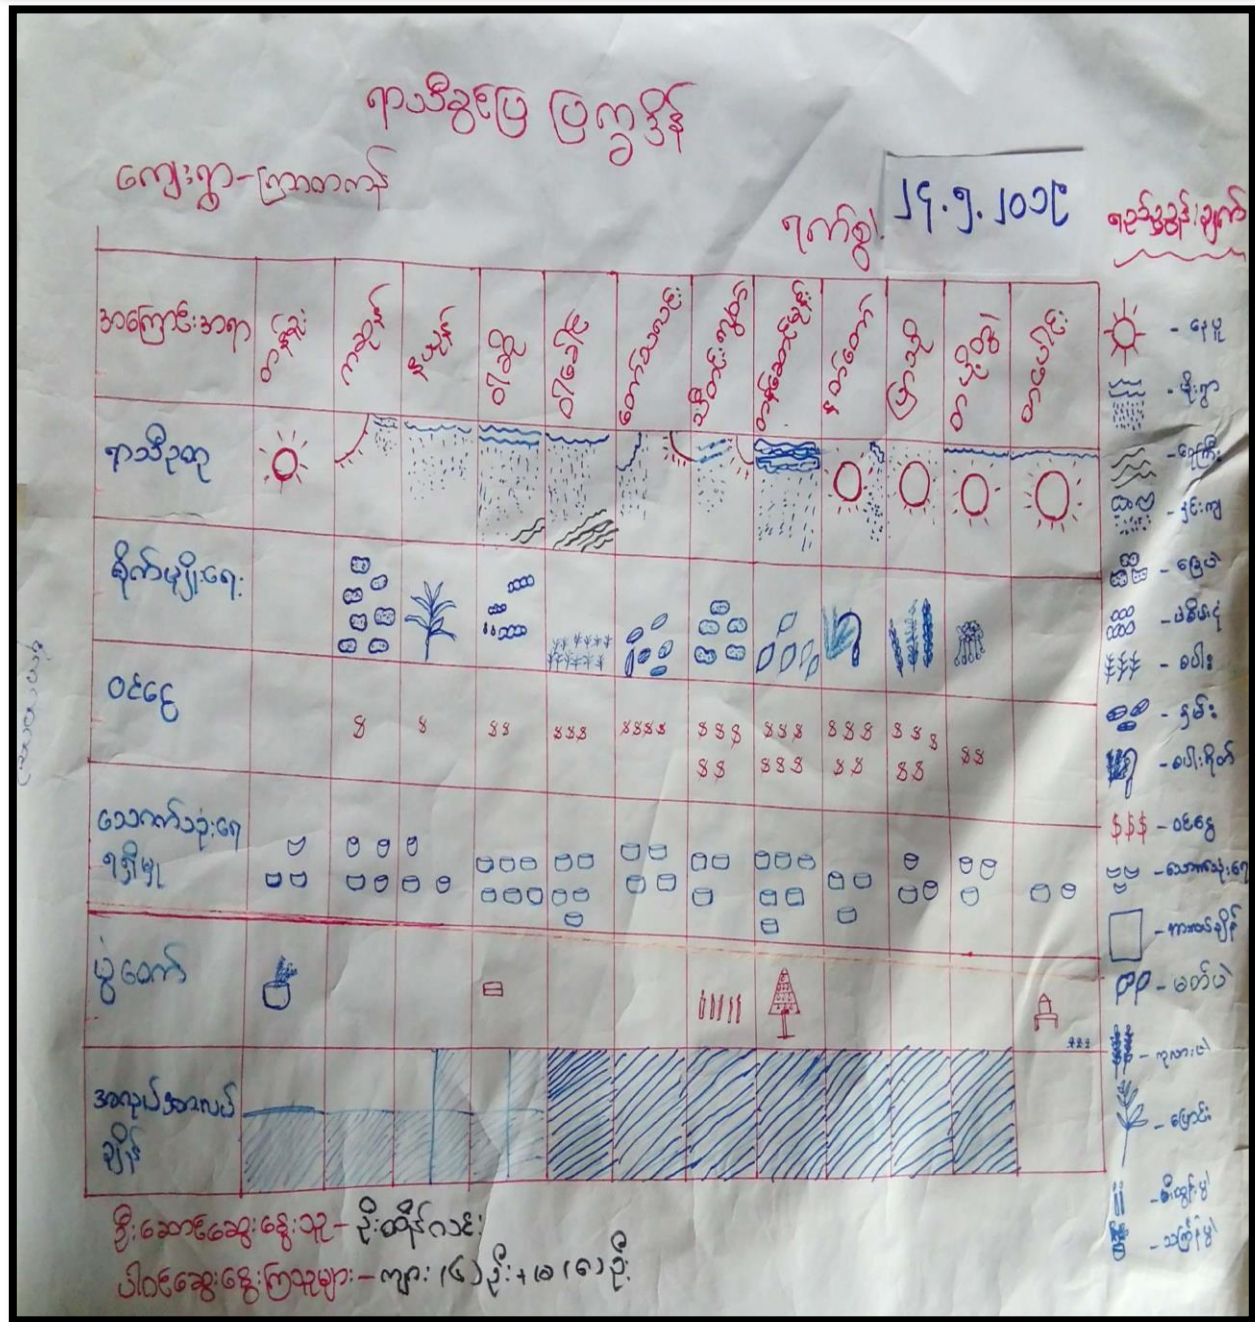 ရာသီခွင်ပြ ပြက္ခဒိန်
ကျေးရွာ-ကြာတကန်
ရက်စွဲ၊ ၂၄.၅.၂၀၁၉
အကြောင်းအရာ
တန်ခူး
ကဆုန်
နယုန်
ဝါဆို
ဝါခေါင်
တော်သလင်း
သီတင်းကျွတ်
တန်ဆောင်မုန်း
နတ်တော်
ပြာသို
တပို့တွဲ
တပေါင်း
ရာသီဥတု
စိုက်ပျိုးရေး
ဝင်ငွေ
သောက်သုံးရေ
ရရှိမှု
ပွဲတော်
အလုပ်အားလပ်
ချိန်
- နေပူ
- မိုးရွာ
- ရေကြီး
- နှင်းကျ
- မြေပဲ
- ပဲစဉ်းငုံ
- စပါး
- နှမ်း
- စပါးရိတ်
- ဝင်ငွေ
- သောက်သုံးရေ
- အားလပ်ချိန်
- မတ်ပဲ
- ကုလားပဲ
- ပြောင်း
- မီးထွန်းပွဲ
- သင်္ကြန်ပွဲ
ဦးဆောင်ဆွေးနွေးသူ - ဦးထိန်လင်း
ပါဝင်ဆွေးနွေးကြသူများ - ကျား (၄) ဦး + မ (၈) ဦး